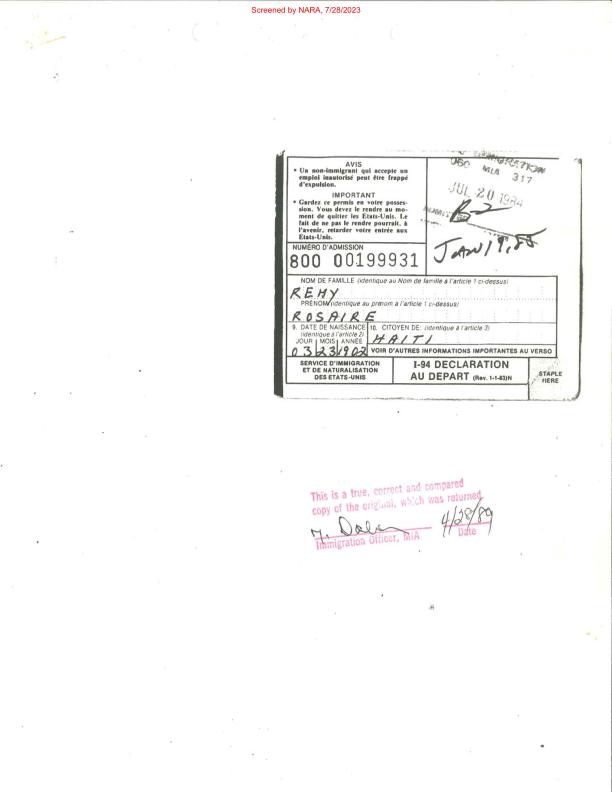 Screened by NARA, 7/28/2023
AVIS
• Un non-immigrant qui accepte un
emploi inautorisé peut être frappé
d'expulsion.
IMPORTANT
• Gardez ce permis en votre posses-
sion. Vous devez le rendre au mo-
ment de quitter les Etats-Unis. Le
fait de ne pas le rendre pourrait, à
l'avenir, retarder votre entrée aux
Etats-Unis.
MIA 317
JUL 20 1984
B-2
JAN 19, 85
NUMÉRO D'ADMISSION
800 00199931
NOM DE FAMILLE (identique au Nom de famille à l'article 1 ci-dessus)
REMY
PRÉNOM (identique au prénom à l'article 1 ci-dessus)
ROSAIRE
9. DATE DE NAISSANCE 10. CITOYEN DE: (identique à l'article 3)
(identique à l'article 2)
JOUR MOIS ANNÉE HAITI
03 23 1902 VOIR D'AUTRES INFORMATIONS IMPORTANTES AU VERSO
SERVICE D'IMMIGRATION
ET DE NATURALISATION
DES ETATS-UNIS
I-94 DECLARATION
AU DEPART (Rev. 1-1-83)N
STAPLE
HERE
This is a true, correct and compared
copy of the original, which was returned
4/28/89
Immigration Officer, MIA Date